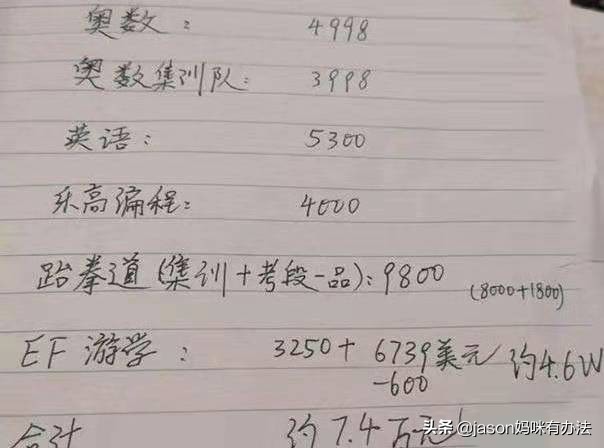 奥数: 4998
奥数集训队: 3998
英语: 5300
乐高编程: 4000
跆拳道(集训+考段一品): 9800 (8000+1800)
EF 游学: 3250+6739美元 约4.6W
-600
合计 约7.4万元
头条 @jason妈咪有办法